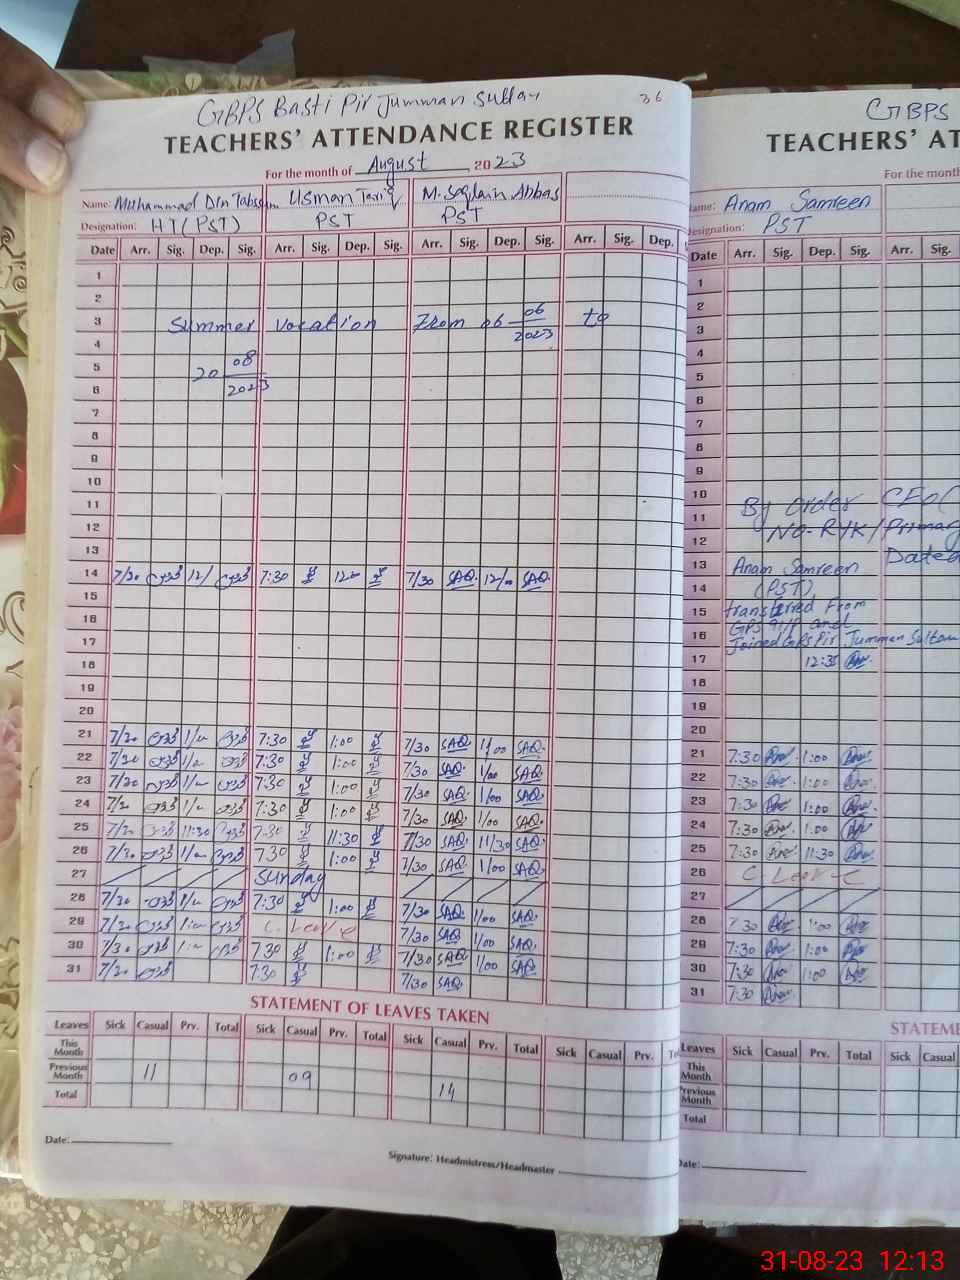 GBPS Basti Pir Jumman Sultan
36
TEACHERS' ATTENDANCE REGISTER
For the month of August 2023
Name: Muhammad Din Tabsum Usman Tariq M. Saqlain Abbas
Designation: HT (PST) PST PST
Date Arr. Sig. Dep. Sig. Arr. Sig. Dep. Sig. Arr. Sig. Dep. Sig. Arr. Sig. Dep.
1
2
3 Summer vocation From 06 06 2023 to
4
5 20 08 2023
6
7
8
9
10
11
12
13
14 7/30 12/ 7:30 7/30 SAQ. SAQ.
15
16
17
18
19
20
21 7/30 7:30 1:00 7/30 SAQ. 1/00 SAQ.
22 7/30 7:30 1:00 7/30 SAQ. 1/00 SAQ.
23 7/30 7:30 1:00 7/30 SAQ. 1/00 SAQ.
24 7/30 7:30 1:00 7/30 SAQ. 1/00 SAQ.
25 7/30 11:30 7:30 11:30 7/30 SAQ. 11/30 SAQ.
26 7/30 730 1:00 7/30 SAQ. 1/00 SAQ.
27 Sunday
28 7/30 7:30 1:00 7/30 SAQ. 1/00 SAQ.
29 7/30 C. Leave 7/30 SAQ. 1/00 SAQ.
30 7/30 730 1:00 7/30 SAQ. 1/00 SAQ.
31 7/30 730 7/30 SAQ.
STATEMENT OF LEAVES TAKEN
Leaves Sick Casual Prv. Total Sick Casual Prv. Total Sick Casual Prv. Total Sick Casual Prv.
This Month
Previous Month 11 09 14
Total
Date:
Signature: Headmistress/Headmaster
GBPS
TEACHERS' AT
For the month
Name: Anam Samreen
Designation: PST
Date Arr. Sig. Dep. Sig. Arr. Sig.
1
2
3
4
5
6
7
8
9
10 By order CEO(
11 NO-RYK/Primary
12 Dated
13 Anam Samreen
14 (PST)
15 transferred From
16 GPS and
Joined GPS Pir Jumman Sultan
17 12:35
18
19
20
21 7:30 1:00
22 7:30 1:00
23 7:30 1:00
24 7:30 1:00
25 7:30 11:30
26 C. Leave
27
28 7:30 1:00
29 7:30 1:00
30 7:30 1:00
31 7:30
STATEME
Leaves Sick Casual Prv. Total Sick Casual
This Month
Previous Month
Total
Date:
31-08-23 12:13